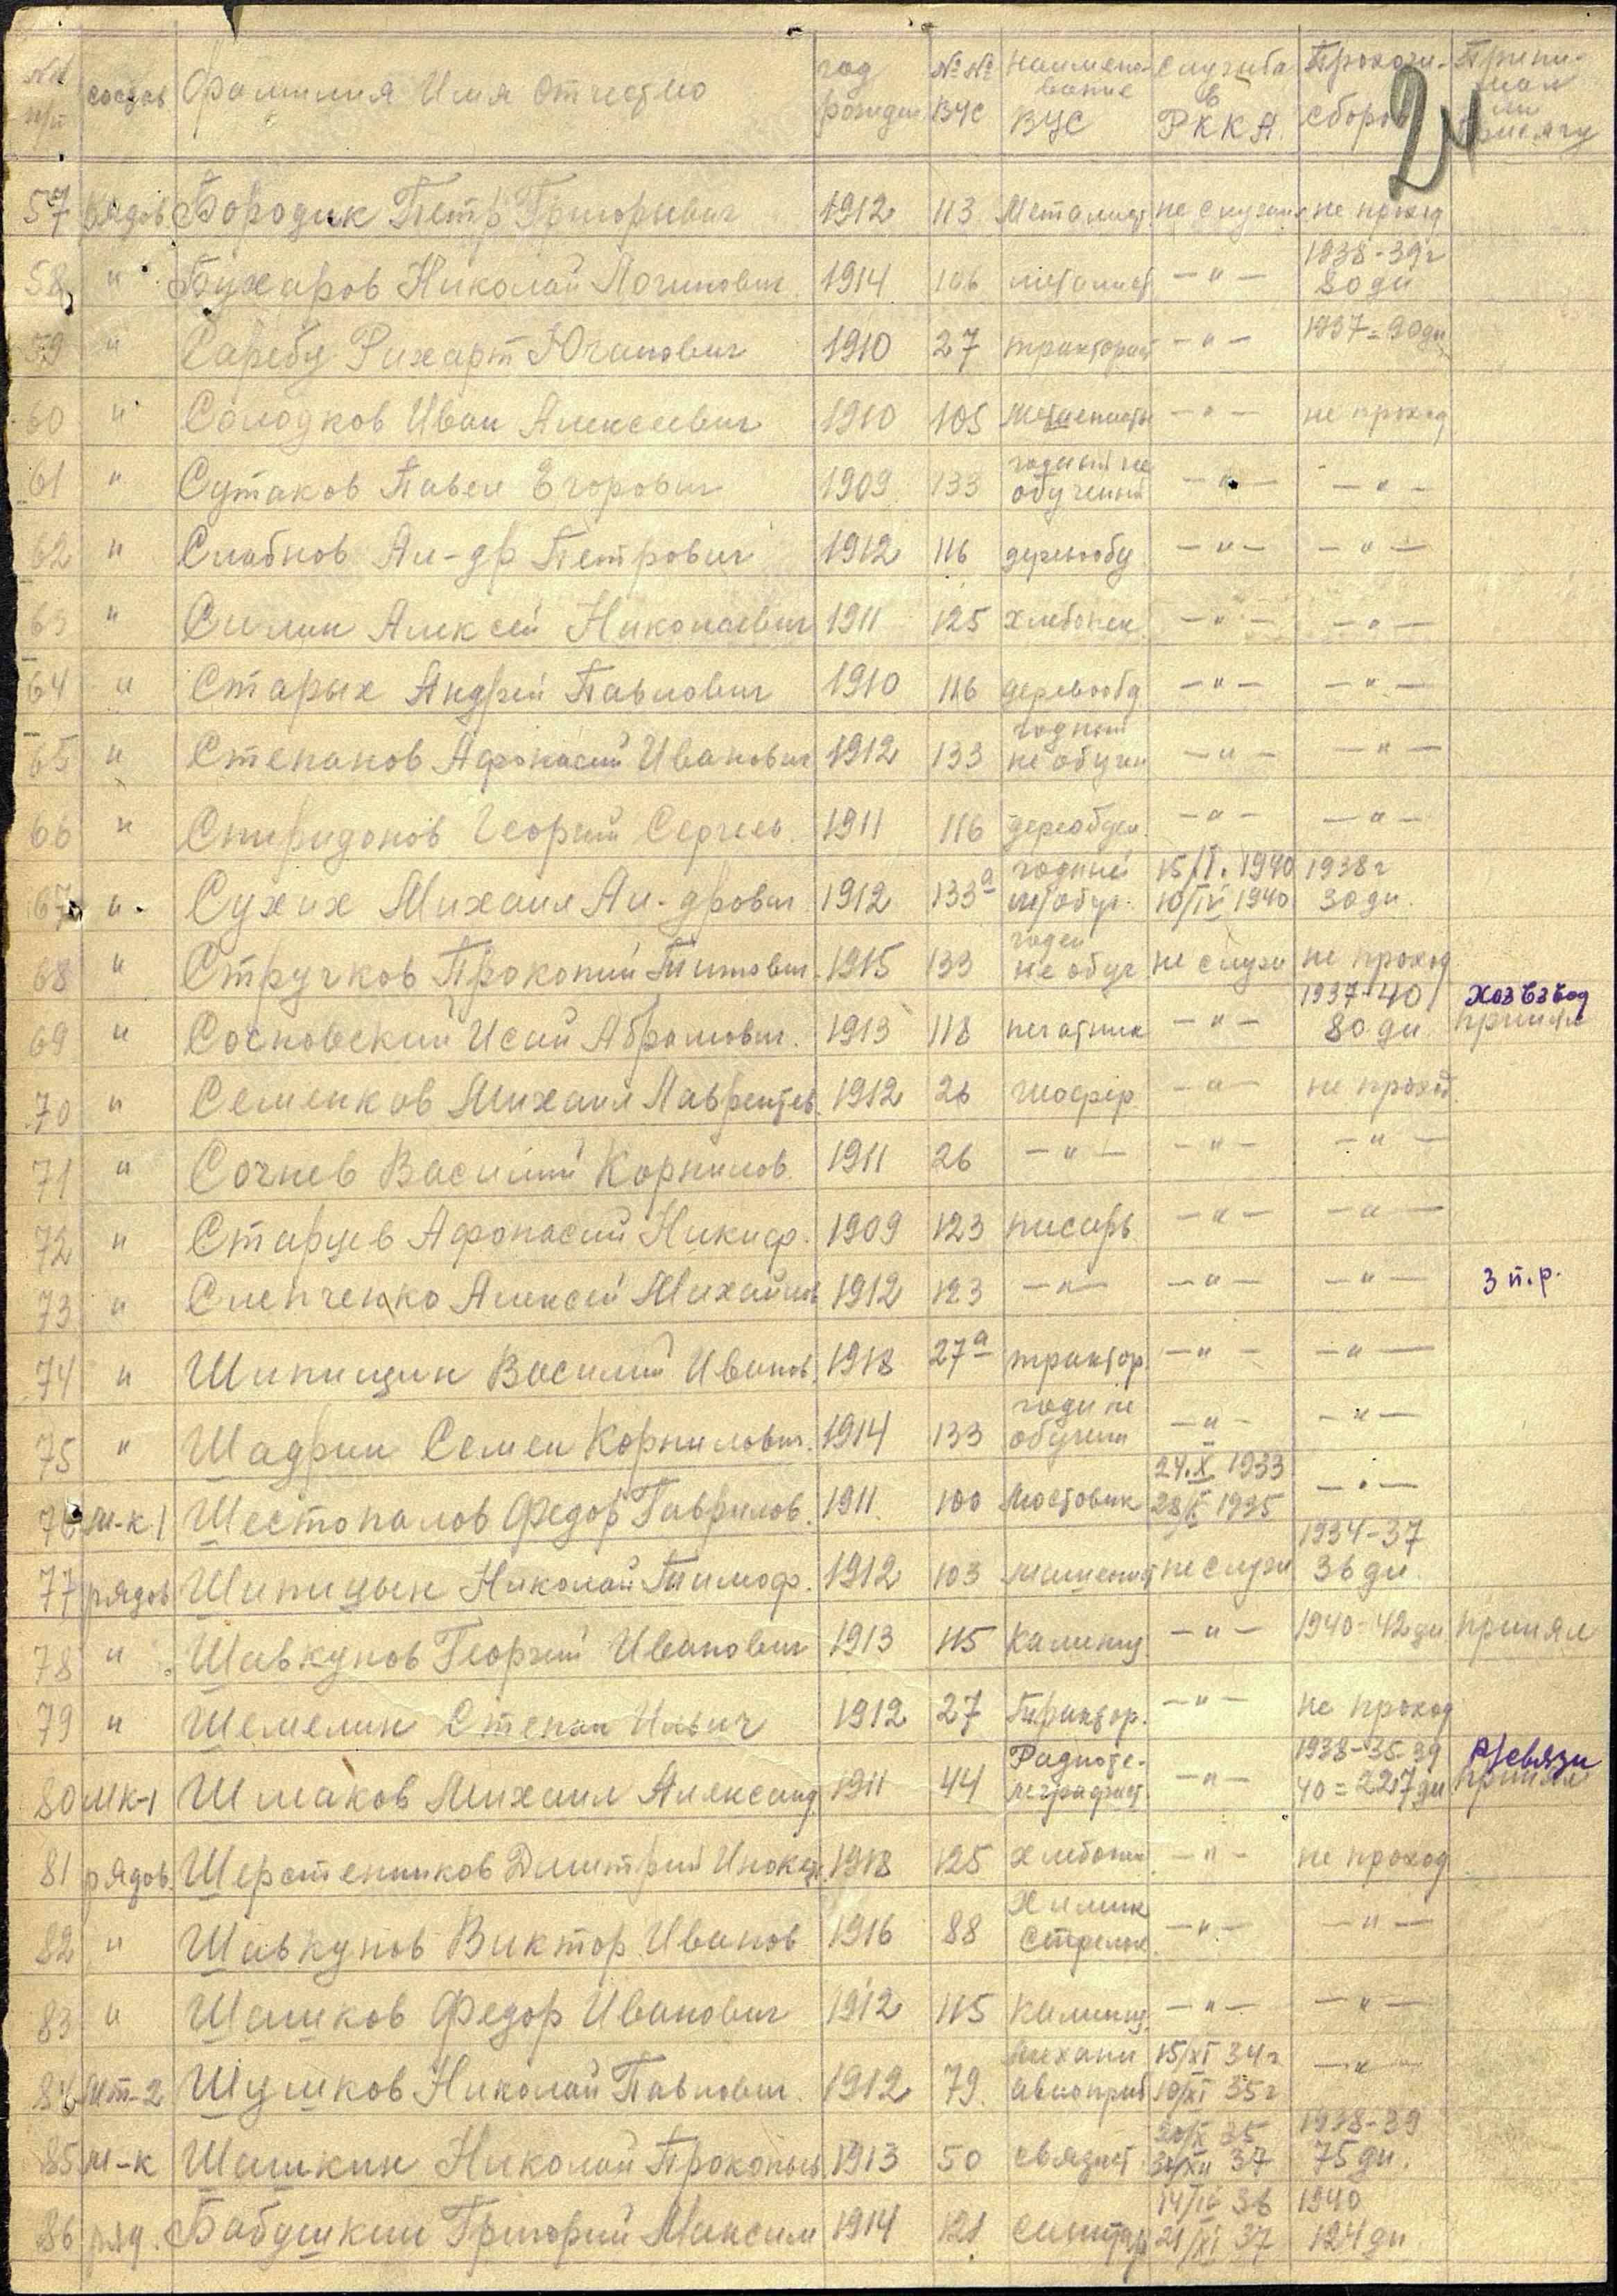 №№ п/п состав Фамилия Имя Отчество год рожден №№ ВУС Наимено-вание ВУС Служба в РККА Проходи- сборов Прини-мал ли присягу
24
57 рядов Бородик Петр Григорьевич 1912 113 Металист не служил не проход
58 " Бухаров Николай Логинович 1914 106 металист —"— 1938-39г 80 дн
59 " Саребу Рихарт Юганович 1910 27 тракторист —"— 1937=90дн
60 " Солодков Иван Алексеевич 1910 105 —"— не проход
61 " Сутаков Павел Егорович 1909 133 годный не обученный —"— —"—
62 " Слабнов Ал-др Петрович 1912 116 деревообд —"— —"—
63 " Силин Алексей Николаевич 1911 125 хлебопек —"— —"—
64 " Старых Андрей Павлович 1910 116 деревообд —"— —"—
65 " Степанов Афонасий Иванович 1912 133 годный не обучен —"— —"—
66 " Спиридонов Георгий Сергеев. 1911 116 дереобдел. —"— —"—
67 " Сухих Михаил Ал-дрович 1912 133а годный 1940 10/IV 1940 1938г 30 дн.
68 " Стручков Прокопий Титович 1915 133 годен не обуч не служ не проход
69 " Сосновский Исай Абрамович. 1913 118 печатник —"— 1937-40 80 дн. Хоз взвод принял
70 " Семенков Михаил Лаврентьев. 1912 26 шофер —"— не проход.
71 " Сочнев Василий Корнилов. 1911 26 —"— —"— —"—
72 " Старцев Афонасий Никиф. 1909 123 писарь —"— —"—
73 " Слепченко Алексей Михайлов 1912 123 —"— —"— —"— 3 п.р.
74 " Шипицин Василий Иванов. 1918 27а трактор. —"— —"—
75 " Шадрин Семен Корнилович. 1914 133 годн не обучен —"— —"—
76 м-к 1 Шестопалов Федор Гаврилов. 1911. 100 Мостовик 24.X 1933 1935 —"—
77 рядов Шипицын Николай Тимоф. 1912 103 не служ 1934-37 36 дн.
78 " Шавкунов Георгий Иванович 1913 115 —"— 1940=42дн принял
79 " Шемелин Степан Ильич 1912 27 Трактор. —"— не проход
80 мк-1 Шмаков Михаил Александ. 1911 44 Радиоте-леграфист. —"— 1938-35-39 40=2217дн Р/связи принял
81 рядов. Шерстенников Дмитрий Инокен. 1918 125 хлебопек —"— не проход
82 " Шавкунов Виктор Иванов 1916 88 Химик Стрелок —"— —"—
83 " Шашков Федор Иванович 1912 115 —"— —"—
84 Мт-2 Шушков Николай Павлович. 1912 79. Механи авиоприб 15/XI 34г 10/XI 35г —"—
85 м-к Шашкин Николай Прокопьев 1913 50 связист 35 37 1938-39 75 дн.
86 ряд. Бабушкин Григорий Максим 1914 121 Санитар 36 21/XI 37 1940 124 дн